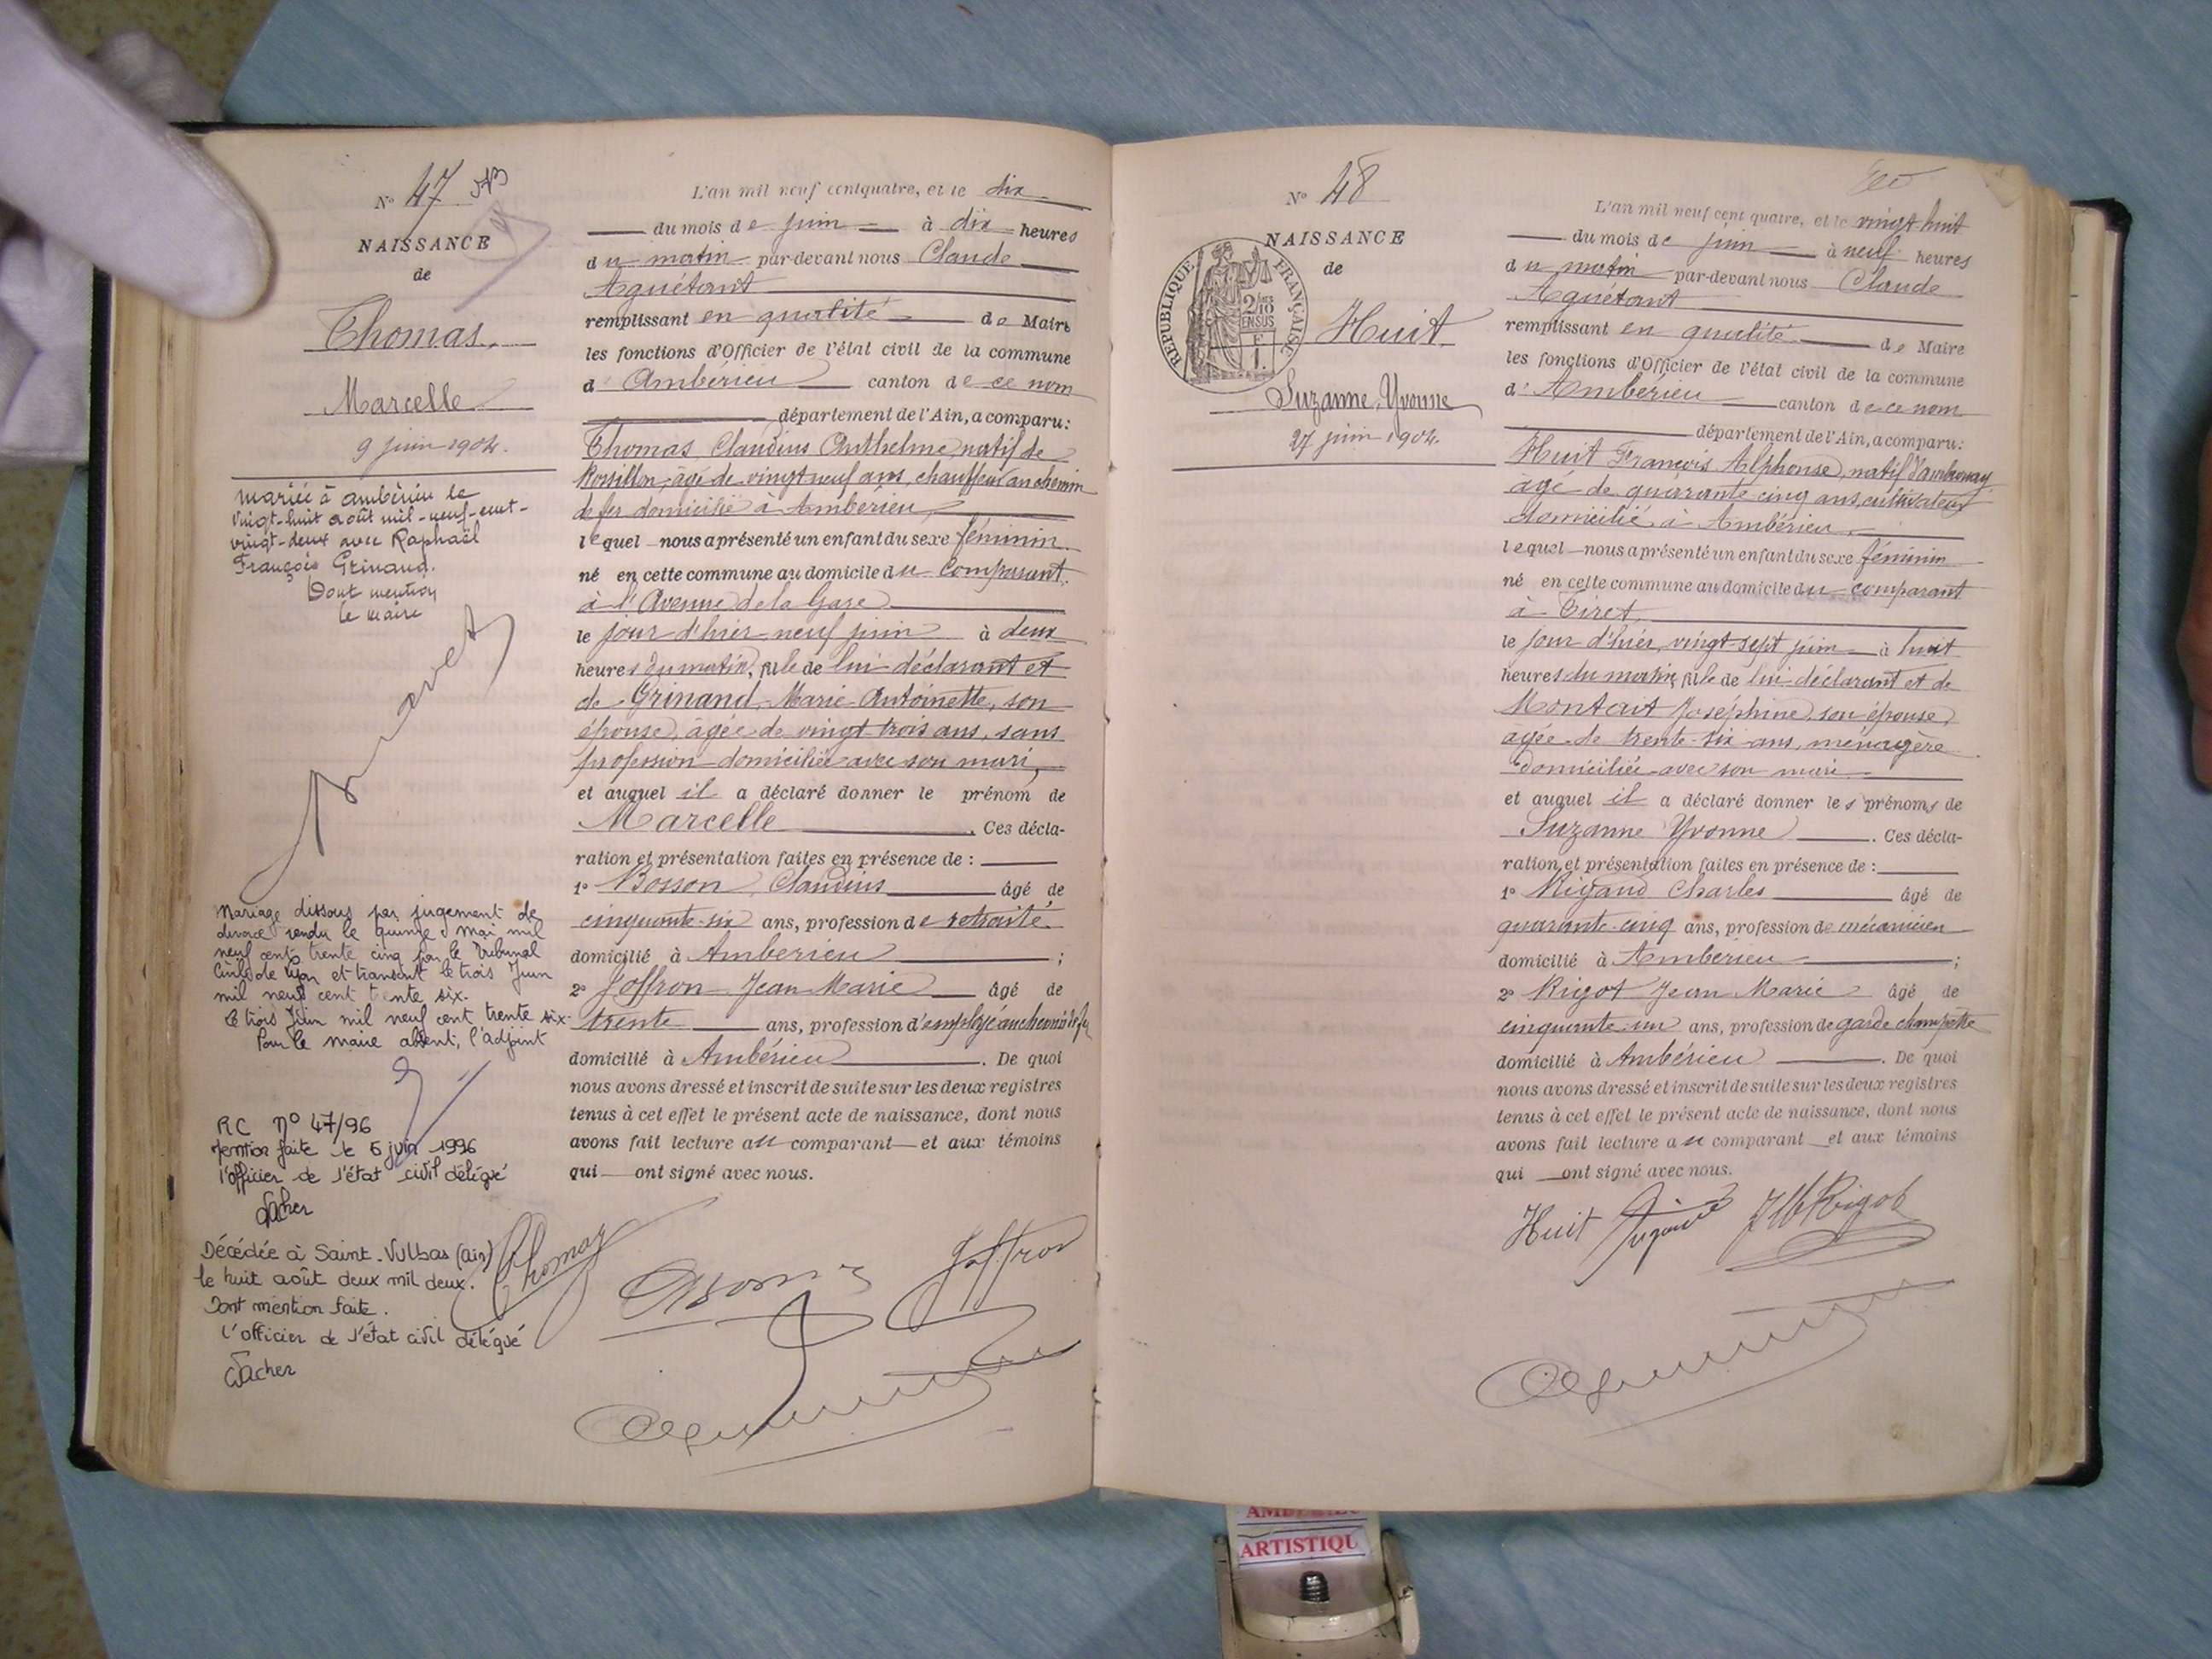 N° 47
NAISSANCE
de
Thomas
Marcelle
9 juin 1904.
mariée à ambérieu le
vingt-huit août mil-neuf-cent-
vingt-deux avec Raphaël
François Grinand.
Dont mention
le maire
Mariage dissous par jugement de
divorce rendu le quinze Mai mil
neuf cent trente cinq par le Tribunal
Civil de Lyon et transcrit le trois Juin
mil neuf cent trente six.
Le trois Juin mil neuf cent trente six
Pour le maire absent, l'adjoint
RC N° 47/96
mention faite le 6 juin 1996
l'officier de l'état civil délégué
Décédée à Saint-Vulbas (Ain)
le huit août deux mil deux.
Dont mention faite.
l'officier de l'état civil délégué
L'an mil neuf cent quatre, et le dix
du mois de juin à dix heures
du matin par-devant nous Claude
Aguétant
remplissant en qualité de Maire
les fonctions d'Officier de l'état civil de la commune
d' Ambérieu canton de ce nom
département de l'Ain, a comparu:
Thomas Claudius Anthelme, natif de
Rossillon, âgé de vingt neuf ans, chauffeur au chemin
de fer domicilié à Ambérieu
lequel nous a présenté un enfant du sexe féminin
né en cette commune au domicile du Comparant
à l'Avenue de la Gare
le jour d'hier neuf juin à deux
heures du matin, fille de lui déclarant et
de Grinand Marie Antoinette, son
épouse, âgée de vingt trois ans, sans
profession domiciliée avec son mari,
et auquel il a déclaré donner le prénom de
Marcelle. Ces décla-
ration et présentation faites en présence de :
1° Bosson Claudius âgé de
cinquante-six ans, profession de retraité
domicilié à Ambérieu ;
2° Joffron Jean Marie âgé de
trente ans, profession d'employé au chemin de fer
domicilié à Ambérieu. De quoi
nous avons dressé et inscrit de suite sur les deux registres
tenus à cet effet le présent acte de naissance, dont nous
avons fait lecture au comparant et aux témoins
qui ont signé avec nous.
Thomas Joffron
N° 48
NAISSANCE
de
RÉPUBLIQUE FRANÇAISE
2/10
EN SUS
Huit
Suzanne, Yvonne
27 juin 1904.
L'an mil neuf cent quatre, et le vingt huit
du mois de juin à neuf heures
du matin par-devant nous Claude
Aguétant
remplissant en qualité de Maire
les fonctions d'Officier de l'état civil de la commune
d' Ambérieu canton de ce nom
département de l'Ain, a comparu:
Huit François Alphonse, natif d'ambronay
âgé de quarante cinq ans, cultivateur
domicilié à Ambérieu
lequel nous a présenté un enfant du sexe féminin
né en cette commune au domicile du comparant
à Tiret
le jour d'hier, vingt-sept juin à huit
heures du matin, fille de lui déclarant et de
Montait Joséphine, son épouse,
âgée de trente-six ans, ménagère
domiciliée avec son mari
et auquel il a déclaré donner les prénoms de
Suzanne Yvonne. Ces décla-
ration et présentation faites en présence de :
1° Rigaud Charles âgé de
quarante-cinq ans, profession de mécanicien
domicilié à Ambérieu ;
2° Rigot Jean Marie âgé de
cinquante-un ans, profession de garde champêtre
domicilié à Ambérieu. De quoi
nous avons dressé et inscrit de suite sur les deux registres
tenus à cet effet le présent acte de naissance, dont nous
avons fait lecture au comparant et aux témoins
qui ont signé avec nous.
Huit Rigaud JM Rigot
ARTISTIQU